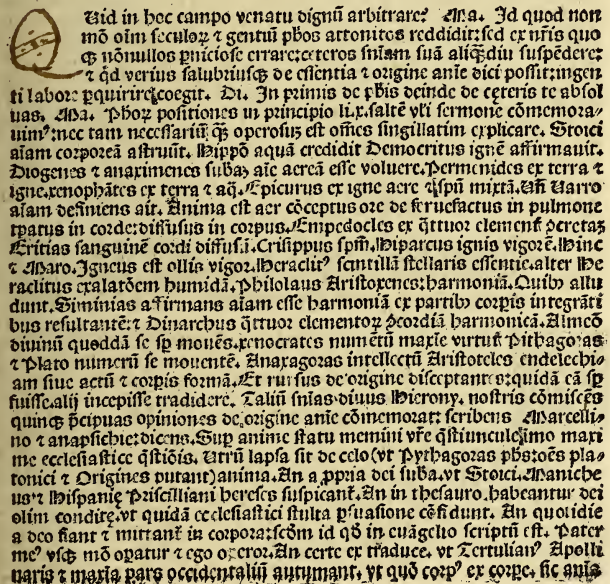 Quid in hoc campo venatu dignū arbitrare? Ma. Id quod non
mō oīm seculoꝝ ⁊ gentiū ph̄os attonitos reddidit: sed ex nr̄is quo
qꝫ nōnullos ꝑniciose errare: ceteros sniam suā aliqdiu suspēdere:
⁊ qd verius salubriusqꝫ de essentia ⁊ origine anīe dici possit: ingen
ti labore ꝑquirire coegit. Di. In primis de ph̄is deinde de ceteris te absol
uas. Ma. Ph̄oꝝ positiones in principio li.x. saltē vl̓i sermone cōmemora
uim⁹: nec tam necessariū qꝫ operosuꝫ est om̄es singillatim explicare. Stoici
aīam corporeā astruūt. Hippō aquā credidit Democritus ignē affirmauit.
Diogenes ⁊ anaximenes subāꝫ aīe aereā esse voluere. Permenides ex terra ⁊
igne. xenophātes ex terra ⁊ aq̄. Epicurus ex igne aere ⁊ spū mixtā. Uñ Uarro
aīam definiens ait. Anima est aer cōceptus ore de feruefactus in pulmone
tꝑatus in corde: diffusus in corpus. Empedocles ex qttuor clement̄
Critias sanguinē cordi diffusū. Crisippus spm̄. Hiparcus ignis vigorē. Hinc
⁊ Maro. Igneus est ollis vigor. Heraclit⁹ scintillā stellaris essentie. alter He
raclitus exalatōem humidā. Philolaus Aristoxenes: harmoniā. Quibꝫ allu
dunt. Siminias affirmans aīam esse harmoniā ex partibꝫ corpis integrāti
bus resultantē: ⁊ Dinarchus qttuor elementoꝝ ꝯcordiā harmonicā. Alineō
diuinū quoddā se sꝑ mouēs. xenocrates numerū maxie virtut̄ Pithagoras
⁊ Plato numerū se mouentē. Anaxagoras intellectū Aristoteles endelechi-
am siue actū ⁊ corpis formā. Et rursus de origine disceptantes: quidā eā sꝑ
fuisse. alij incepisse tradidere. Taliū snias diuus Hierony. nostris cōmiscēs
quinqꝫ p̄cipuas opiniones de origine anīe cōmemorat: scribens Marcelli-
no ⁊ anapsichie: dicens. Suꝑ anime statu memini vr̄e qstiuncule: imo maxi
me ecclesiastice qstiōis. Utrū lapsa sit de celo (vt Pythagoras ph̄s: oēs pla-
tonici ⁊ Origines putant) anima. An a ꝓpria dei subā. vt Stoici. Maniche
us ⁊ Hispanię Priscilliani hereses suspicant. An in thesauro habeantur dei
olim condite. vt quidā ecclesiastici stulta ꝑsuasione cōfidunt. An quotidie
a deo fiant ⁊ mittant in corpora: scdm id qd̄ in euāgelio scriptū est. Pater
me⁹ vsqꝫ mō opatur ⁊ ego operor. An certe ex traduce. vt Tertulian⁹ Apolli
naris ⁊ maxia pars occidentaliū autumant. vt quō corp⁹ ex corpe. sic anīa